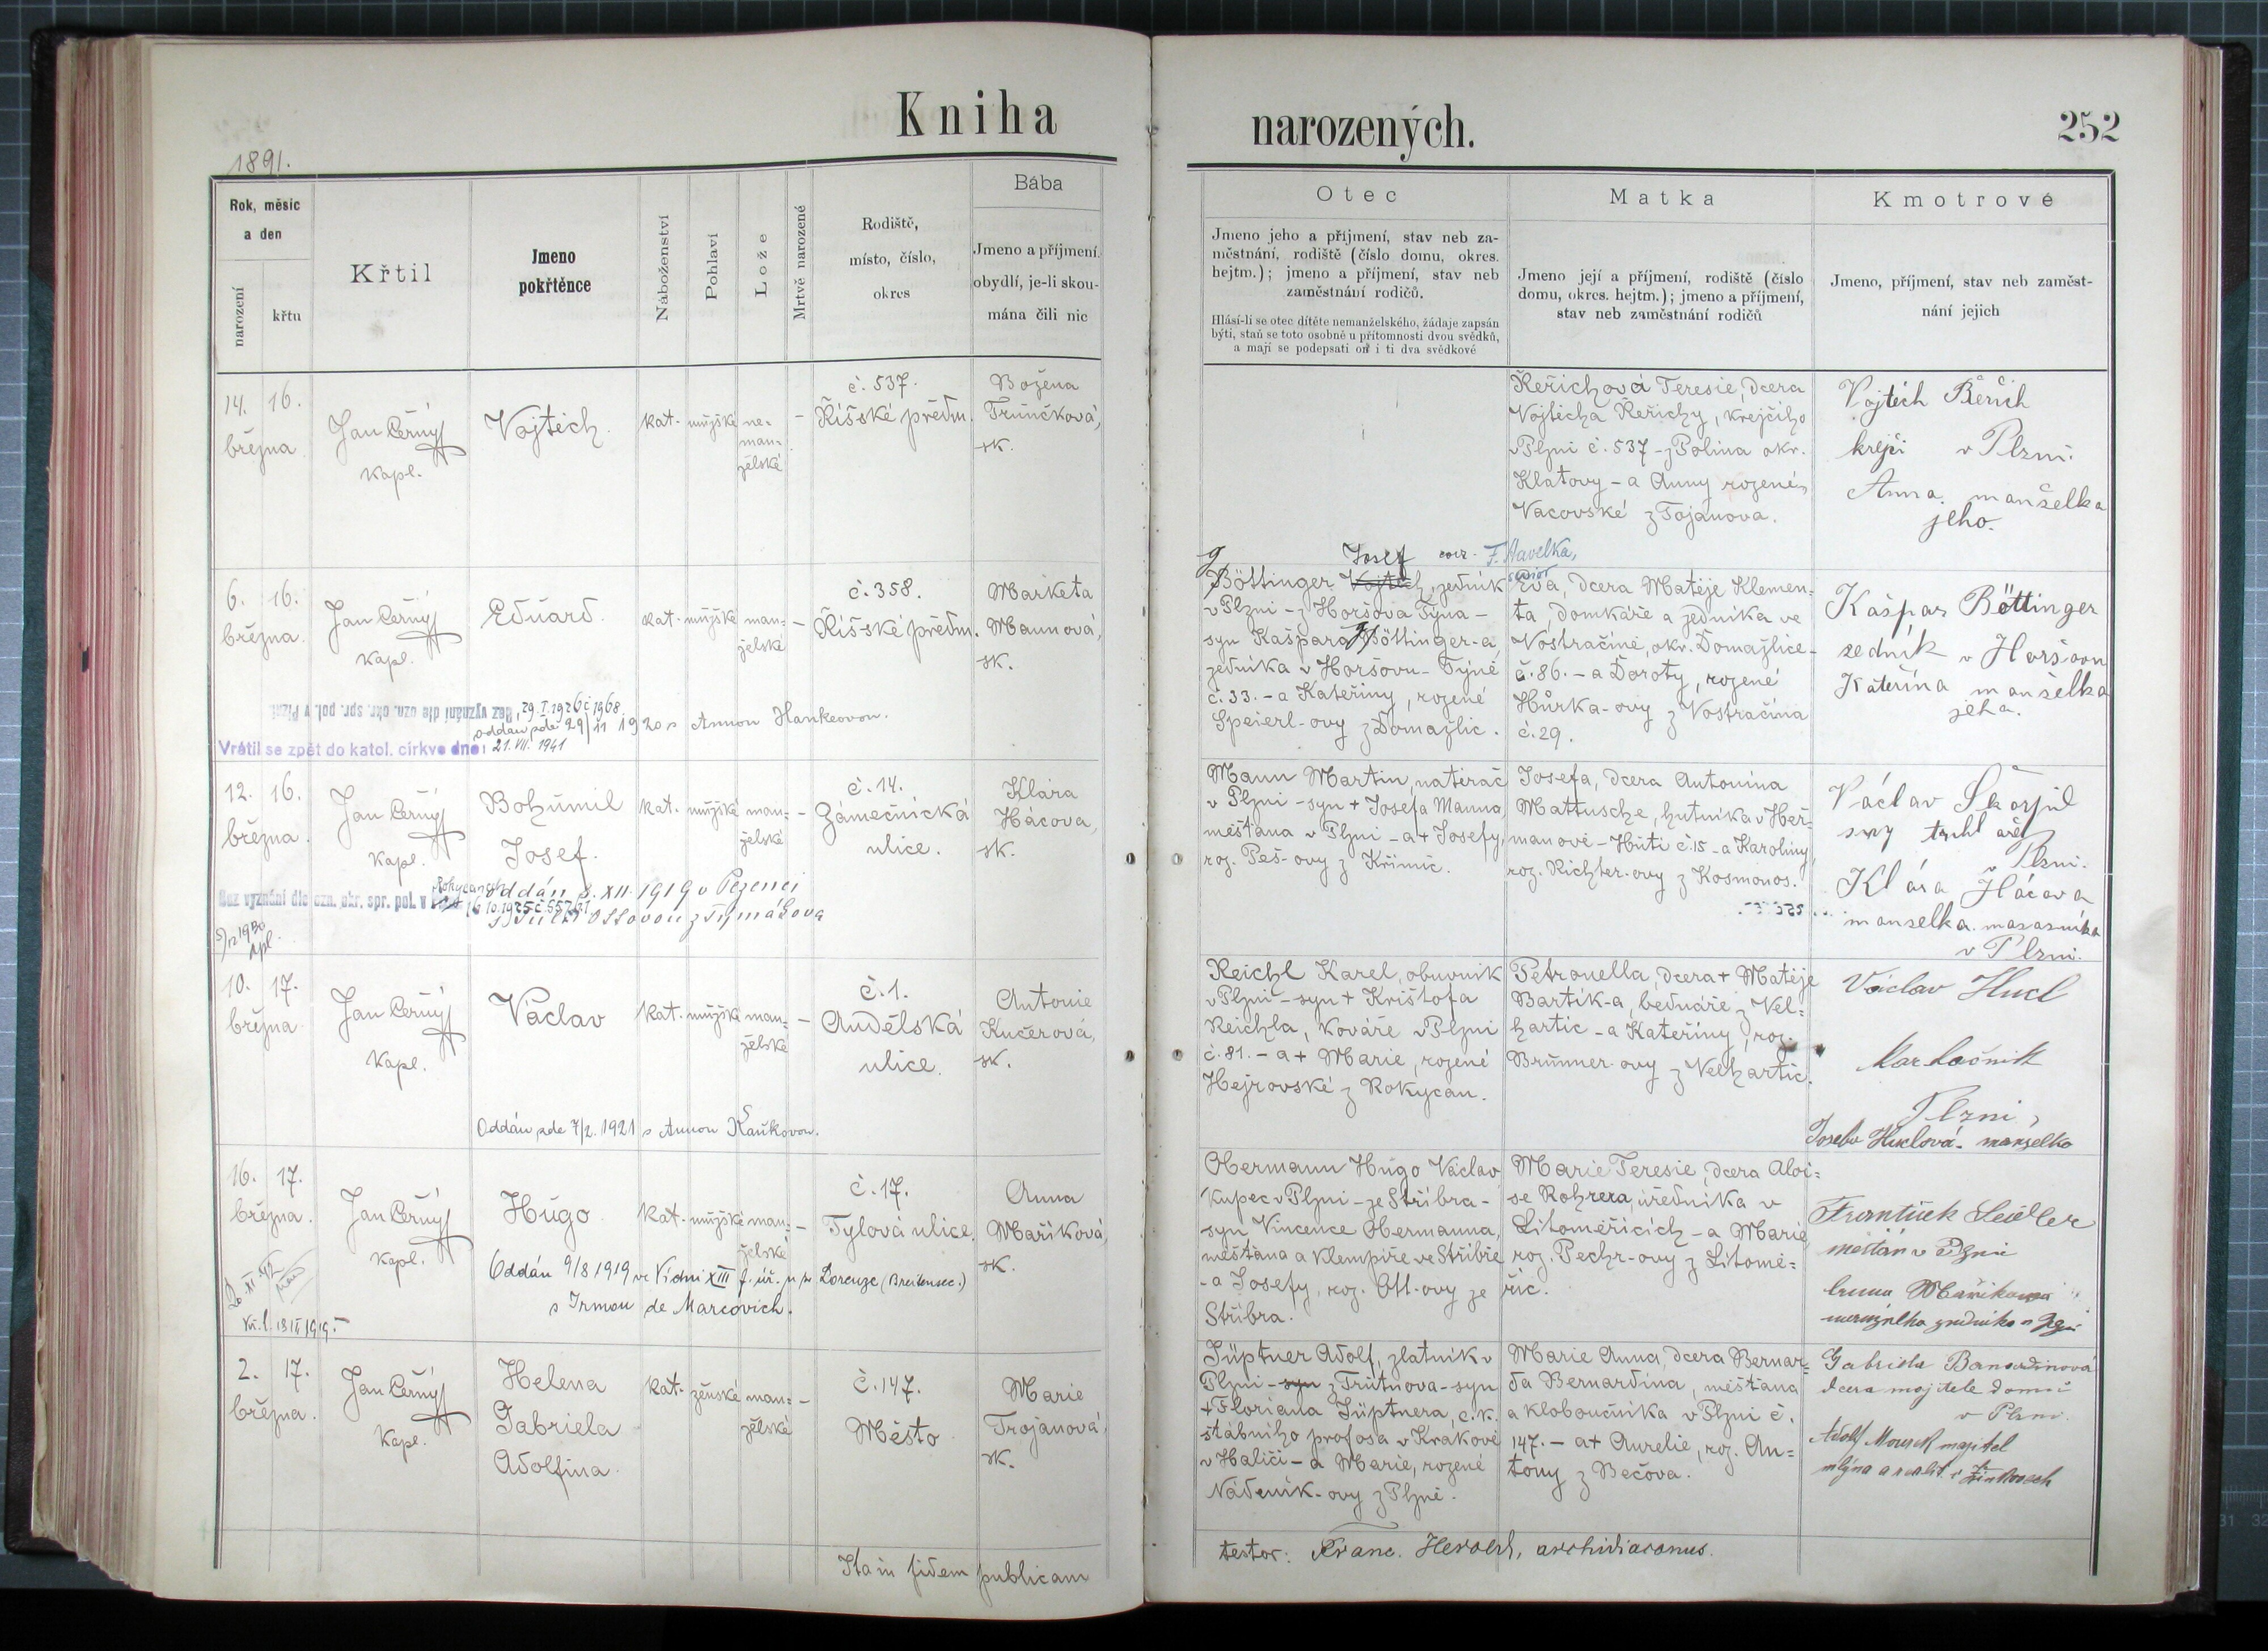 Kniha
narozených.
252
1891.
Rok, měsíc
a den
narození
křtu
Křtil
Jmeno
pokřtěnce
Náboženství
Pohlaví
Lože
Mrtvě narozené
Rodiště,
místo, číslo,
okres
Bába
Jmeno a příjmení.
obydlí, je-li skou-
mána čili nic
Otec
Jmeno jeho a příjmení, stav neb za-
městnání, rodiště (číslo domu, okres.
hejtm.); jmeno a příjmení, stav neb
zaměstnání rodičů.
Hlásí-li se otec dítěte nemanželského, žádaje zapsán
býti, staň se toto osobně u přítomnosti dvou svědků,
a mají se podepsati on i ti dva svědkové
Matka
Jmeno její a příjmení, rodiště (číslo
domu, okres. hejtm.); jmeno a příjmení,
stav neb zaměstnání rodičů
Kmotrové
Jmeno, příjmení, stav neb zaměst-
nání jejich
14. 16.
března
Jan Černý
kapl.
Vojtěch.
kat.
mužské
ne-
man-
želské
-
č. 537.
Říšské předm.
Božena
Trunčková,
sk.
Řeřichová Teresie, dcera
Vojtěcha Řeřichy, krejčího
v Plzni č. 537 - z Polína okr.
Klatovy - a Anny rozené
Vacovské z Tojanova.
Vojtěch Řeřich
krejčí v Plzni.
Anna manželka
jeho.
6. 16.
března.
Jan Černý
kapl.
Eduard.
kat.
mužské
man-
želské
-
č. 358.
Říšské předm.
Marketa
Maunová,
sk.
Bez vyznání dle ozn. okr. spr. pol. v Plzni 29. I. 1926 č 1968.
oddán zde 29/11 1920 s Annou Hankeovou.
Vrátil se zpět do katol. církve dne: 21. VII. 1941
Josef corr. F. Havelka,
Böttinger Vojtěch, zedník
v Plzni - z Horšova Týna -
syn Kašpara Böttinger-a,
zedníka v Horšovu-Týně
č. 33. - a Kateřiny, rozené
Speierl-ovy z Domažlic.
Eva, dcera Matěje Klemen-
ta, domkáře a zedníka ve
Vostračíně, okr. Domažlice -
č. 86. - a Doroty, rozené
Hůrka-ovy z Vostračína
č. 29.
Kašpar Böttinger
zedník v Horšovu
Kateřina manželka
jeho.
12. 16.
března.
Jan Černý
kapl.
Bohumil
Josef.
kat.
mužské
man-
želské
-
č. 14.
Zámečnická
ulice.
Klára
Hácova,
sk.
Bez vyznání dle ozn. okr. spr. pol. v
Rokycanech
oddán 8. XII. 1919 v
Mann Martin, natěrač
v Plzni - syn + Josefa Manna,
měšťana v Plzni - a + Josefy,
roz. Peš-ovy z Křimic.
Josefa, dcera Antonína
Mattusche, hutníka v Heř-
manově-Huti č. 15 - a Karoliny,
roz. Richter-ovy z Kosmonos.
Václav Škorpil
v Plzni.
Klára Hácova
manželka
v Plzni.
10. 17.
března
Jan Černý
kapl.
Václav
kat.
mužské
man-
želské
-
č. 1.
Andělská
ulice.
Antonie
Kučerová,
sk.
Oddán zde 7/2. 1921 s Annou Kaňkovou.
Reichl Karel, obuvník
v Plzni - syn + Krištofa
Reichla, kováře v Plzni
č. 81. - a + Marie, rozené
Hejrovské z Rokycan.
Petronella, dcera + Matěje
Bartík-a, bednáře z Vel-
hartic - a Kateřiny, roz.
Brunner-ovy z Velhartic.
Václav Hucl
Plzni,
Josefa Huclová - manželka
16. 17.
března.
Jan Černý
kapl.
Hugo
kat.
mužské
man-
želské
-
č. 17.
Tylová ulice.
Anna
Maříková,
sk.
Oddán 9/8 1919 ve Vídni XIII f. úř. u sv Lorenze (Breitensee.)
s Irmou de Marcovich.
Hermann Hugo Václav
kupec v Plzni - ze Stříbra -
syn Vincence Hermanna,
měšťana a klempíře ve Stříbře
- a Josefy, roz. Ott-ovy ze
Stříbra.
Marie Teresie, dcera Aloi-
se Rohrera, úředníka v
Litoměřicích - a Marie,
roz. Pechr-ovy z Litomě-
řic.
František Seidler
měšťan v Plzni
Anna Maříkova
2. 17.
března.
Jan Černý
kapl.
Helena
Gabriela
Adolfina.
kat.
ženské
man-
želské
-
č. 147.
Město
Marie
Trojanová,
sk.
Jüptner Adolf, zlatník v
Plzni - syn z Trutnova - syn
+ Floriana Jüptnera, c. k.
štábního profosa v Krakově
v Haliči - a Marie, rozené
Nádeník-ovy z Plzně.
Marie Anna, dcera Bernar-
da Bernardina, měšťana
a kloboučníka v Plzni č.
147. - a + Aurelie, roz. An-
tony z Bečova.
Gabriela Bernardinová
dcera majitele domu
v Plzni.
Adolf Mourek majitel
mlýna a realit v Žinkovech
Ita in fidem publicam
testor: Franc. Herold, archidiaconus.